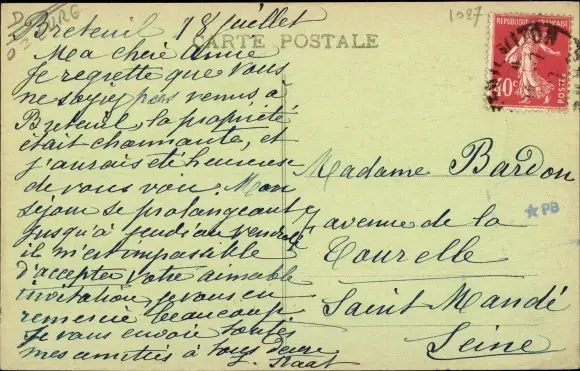 1027
Breteuil 18 juillet
CARTE POSTALE
REPUBLIQUE FRANÇAISE
40c
POSTES
Ma chère amie
Je regrette que vous
ne soyiez pas venus à
Breteuil, la propriété
était charmante, et
j'aurais été heureuse
de vous voir. Mon
séjour se prolongeant
jusqu'à jeudi ou vendredi
il m'est impossible
d'accepter votre aimable
invitation, je vous en
remercie beaucoup
Je vous envoie toutes
mes amitiés à tous deux
Madame Bardon
7 avenue de la
Tourelle
Saint Mandé
Seine
★PB